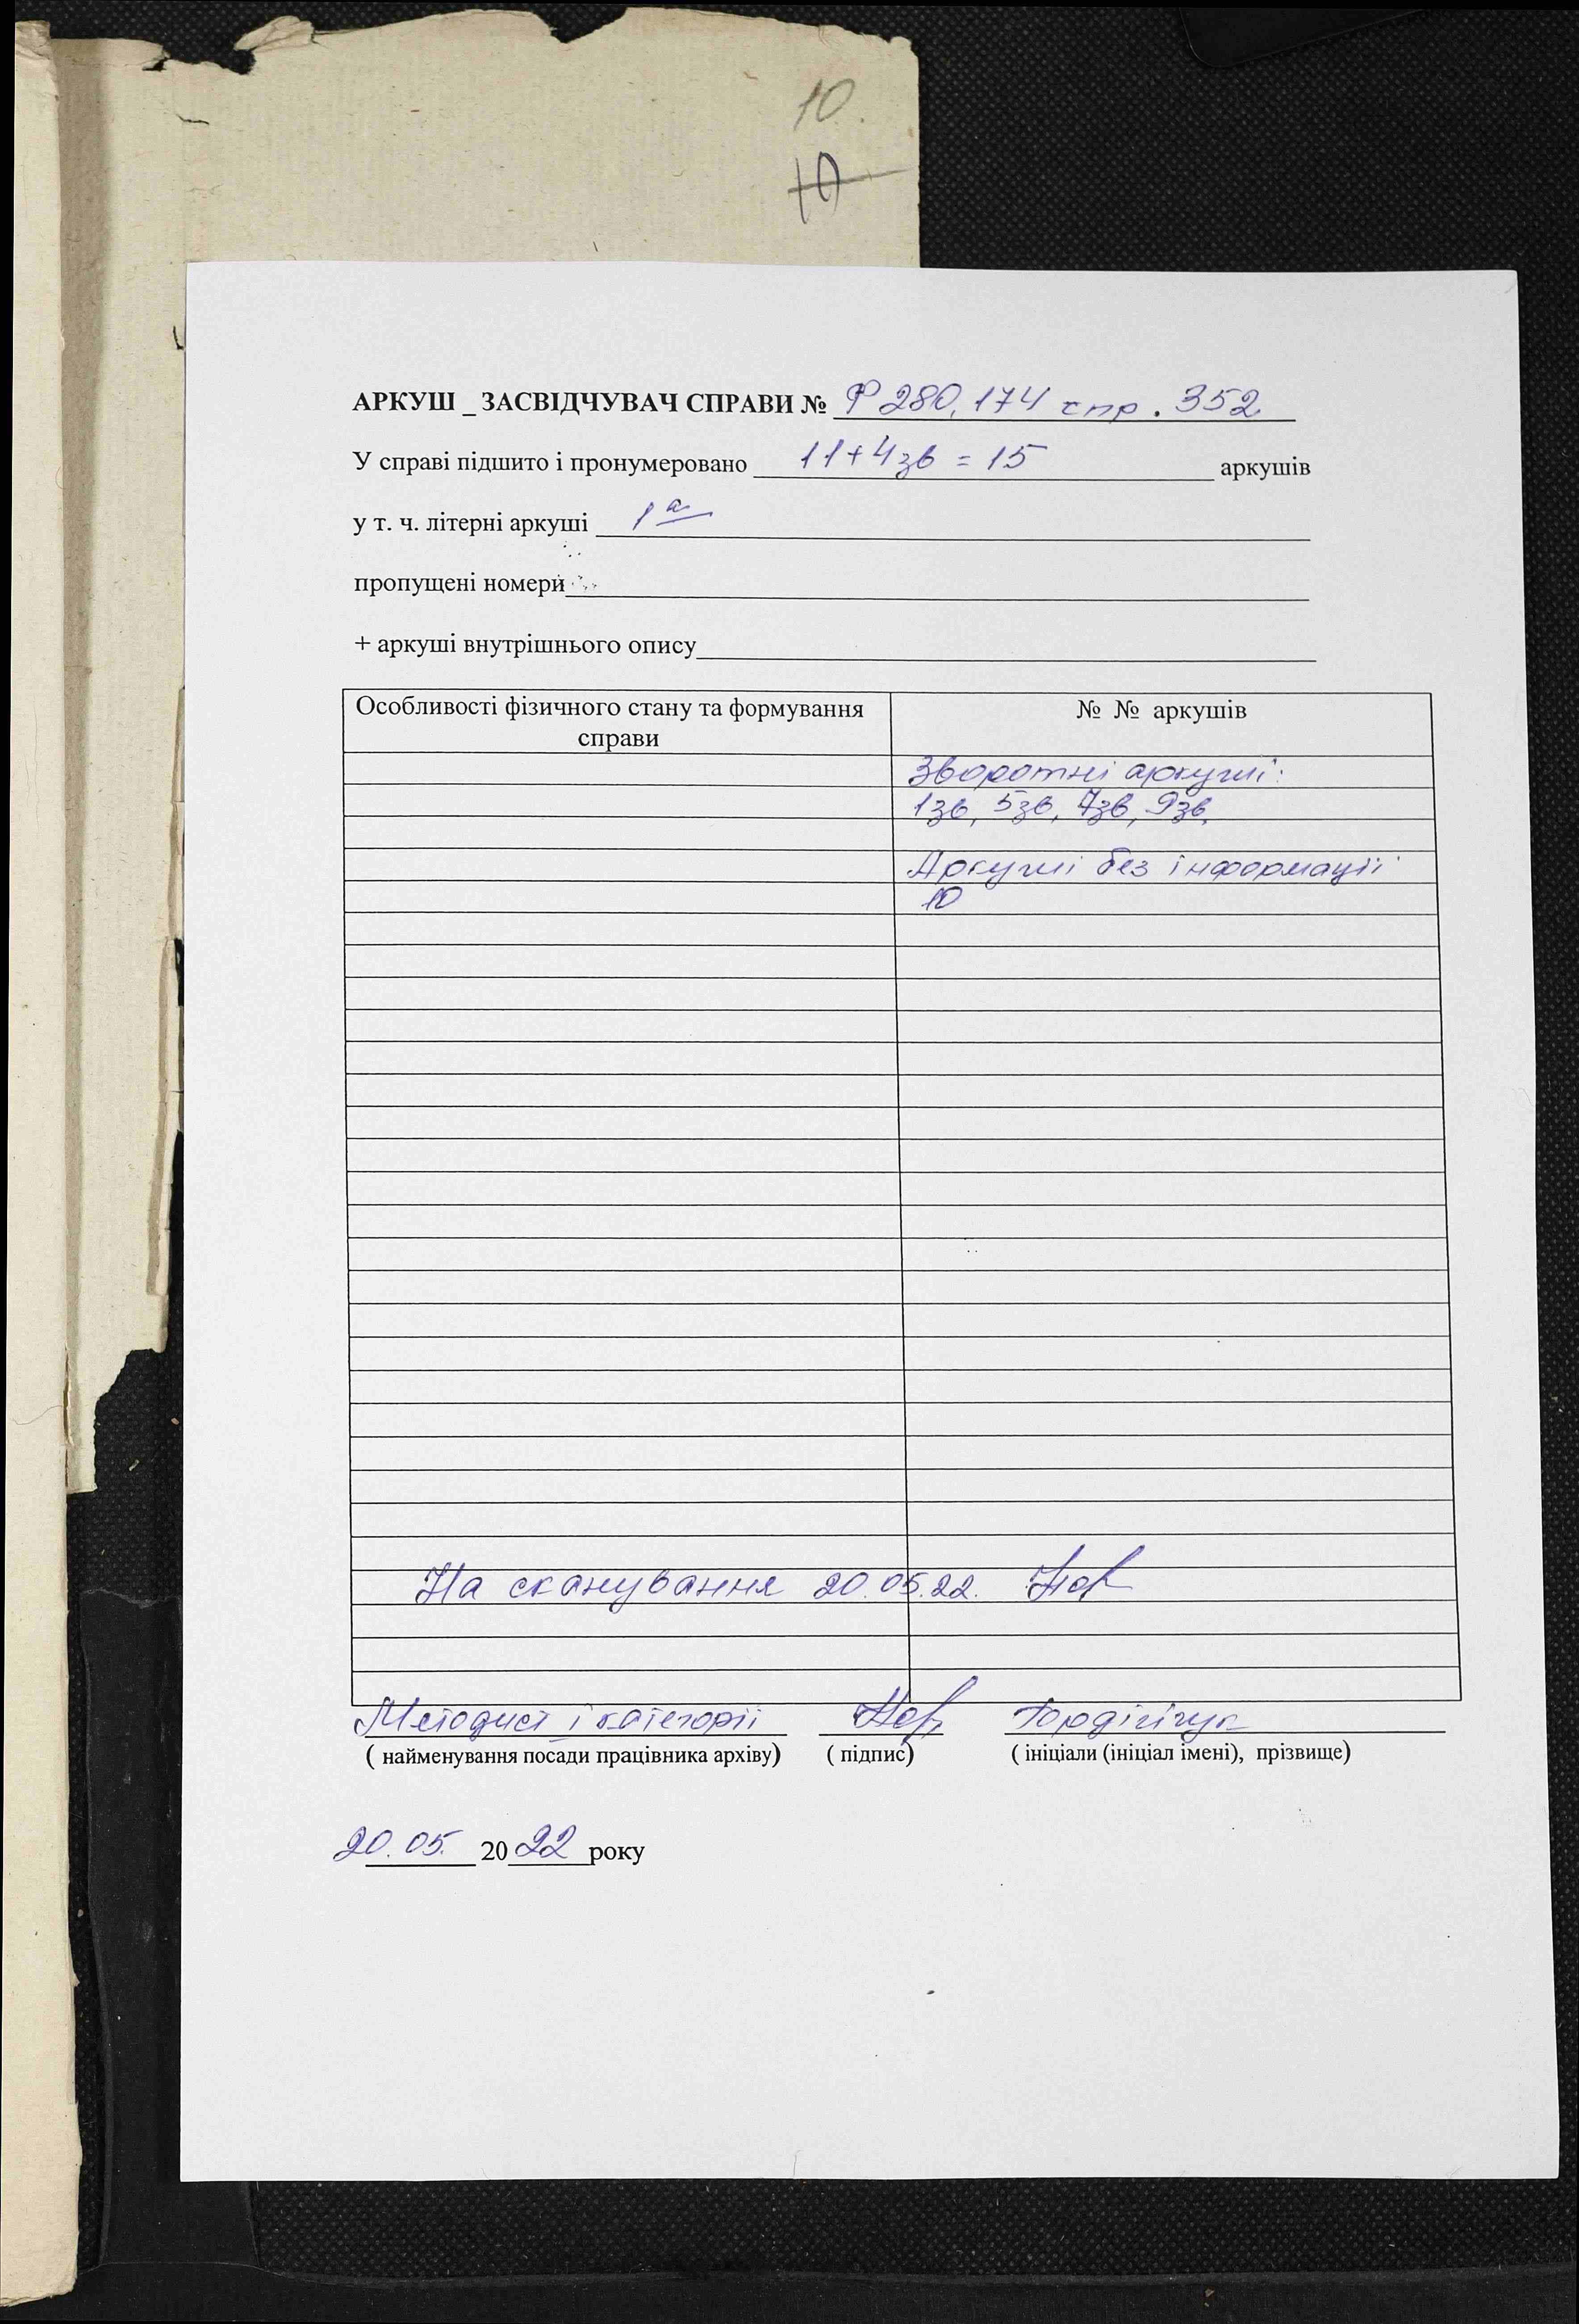 10.
10
АРКУШ _ ЗАСВІДЧУВАЧ СПРАВИ № Р 280, 174 спр. 352
У справі підшито і пронумеровано 11+4зв = 15 аркушів
у т. ч. літерні аркуші 1а
пропущені номери
+ аркуші внутрішнього опису
Особливості фізичного стану та формування справи № № аркушів
Зворотні аркуші:
1зв, 5зв, 7зв, 9зв,
Аркуші без інформації
10
На сканування 20.05.22.
Методист І категорії
( найменування посади працівника архіву) ( підпис) ( ініціали (ініціал імені), прізвище)
20.05. 2022 року